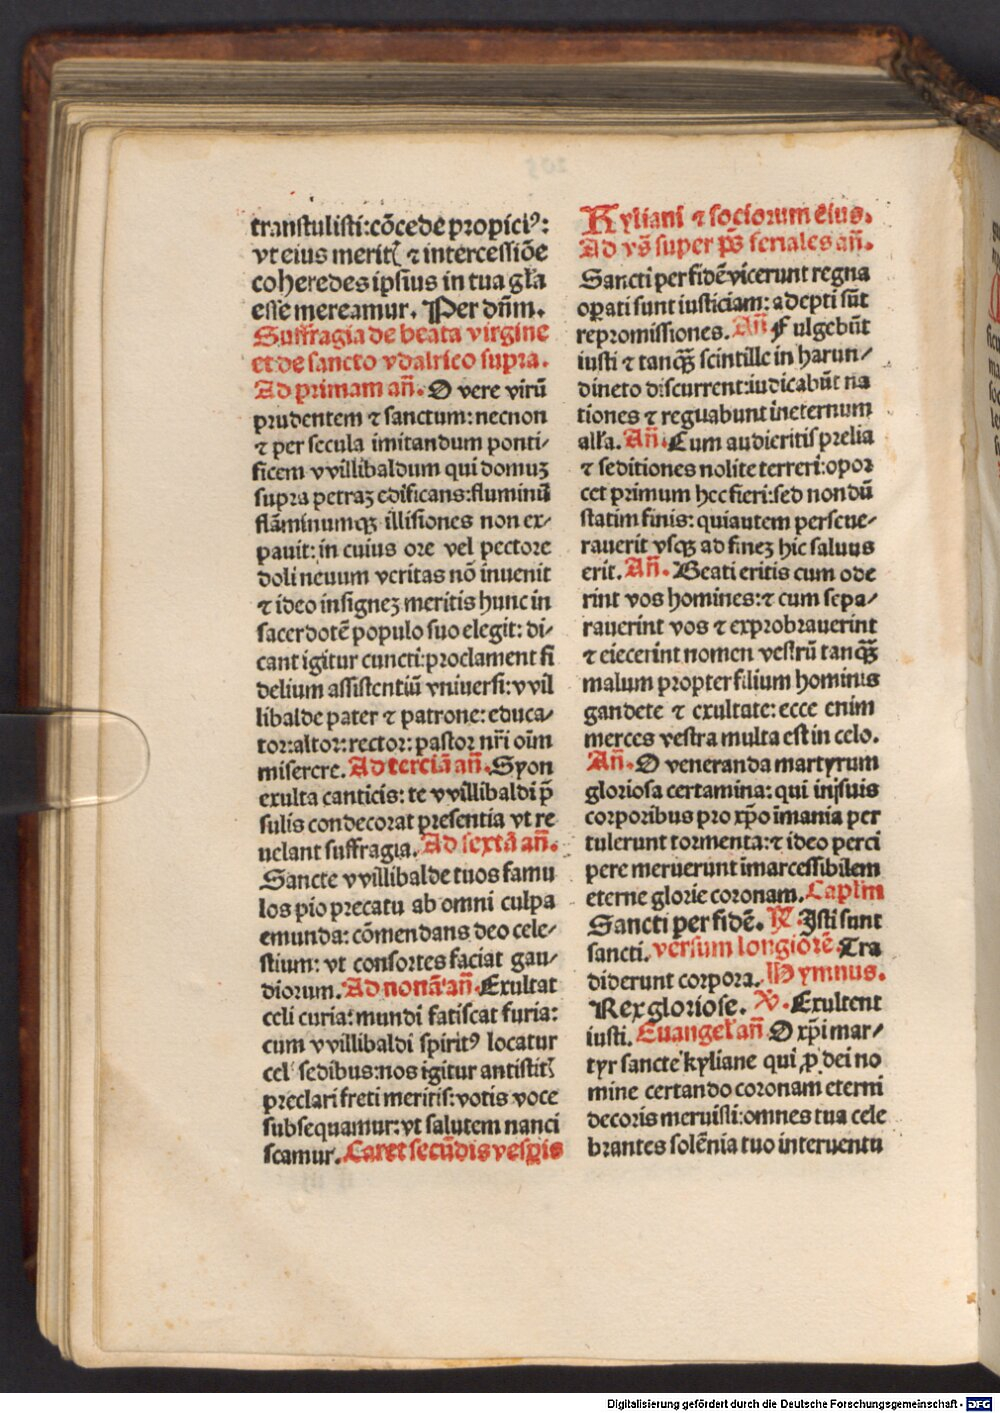 transtulisti:cōcede propiciꝰ:
vt eius meritꝭ ⁊ intercessiōe
coheredes ipsius in tua gl̄a
esse mereamur. Per dn̄m.
Suffragia de beata virgine
et de sancto vdalrico supra.
Ad primam an̄. O vere virū
prudentem ⁊ sanctum: necnon
⁊ per secula imitandum ponti⸗
ficem vvillibaldum qui domuꝫ
supra petraꝫ edificans:fluminū
flāminumqꝫ illisiones non ex⸗
pauit: in cuius ore vel pectore
doli neuum veritas nō inuenit
⁊ ideo insigneꝫ meritis hunc in
sacerdotē populo suo elegit: di⸗
cant igitur cuncti:proclament fi
delium assistentiū vniuersi:vvil
libalde pater ⁊ patrone: educa⸗
tor:altor: rector: pastor nr̄i oīm
miserere. Ad terciā an̄. Syon
exulta canticis: te vvillibaldi p̄
sulis condecorat presentia vt re
uelant suffragia. Ad sextā an̄.
Sancte vvillibalde tuos famu
los pio precatu ab omni culpa
emunda: cōmendans deo cele⸗
stium: vt consortes faciat gau⸗
diorum. Ad nonā an̄. Exultat
celi curia: mundi fatiscat furia:
cum vvillibaldi spiritꝰ locatur
cel' sedibus:nos igitur antistitꝭ
preclari freti meritis: votis voce
subsequamur: vt salutem nanci
scamur. Caret secūdis vesꝑis
Kyliani ⁊ sociorum eius.
Ad vs̄ super ps̄ feriales an̄.
Sancti per fidē vicerunt regna
oꝑati sunt iusticiam: adepti sūt
repromissiones. An̄ Fulgebūt
iusti ⁊ tanqꝫ scintille in harun⸗
dineto discurrent:iudicabūt na
tiones ⁊ regnabunt ineternum
all'a. An̄. Cum audieritis prelia
⁊ seditiones nolite terreri: opor
cet primum hec fieri: sed nondū
statim finis: qui autem perseue⸗
rauerit vsqꝫ ad fineꝫ hic saluus
erit. An̄. Beati eritis cum ode
rint vos homines:⁊ cum sepa⸗
rauerint vos ⁊ exprobrauerint
⁊ eiecerint nomen vestrū tanqꝫ
malum propter filium hominis
gandete ⁊ exultate: ecce enim
merces vestra multa est in celo.
An̄. O veneranda martyrum
gloriosa certamina: qui in suis
corporibus pro xp̄o imania per
tulerunt tormenta:⁊ ideo perci
pere meruerunt imarcessibilem
eterne glorie coronam. Cap̄lm
Sancti per fidē. ℟. Isti sunt
sancti. versum longiorē Tra
diderunt corpora. Hymnus.
Rex gloriose. ℣. Exultent
iusti. Euangel' an̄ O xp̄i mar⸗
tyr sancte kyliane qui ꝓ dei no
mine certando coronam eterni
decoris meruisti: omnes tua cele
brantes solēnia tuo interuentu
Digitalisierung gefördert durch die Deutsche Forschungsgemeinschaft - DFG